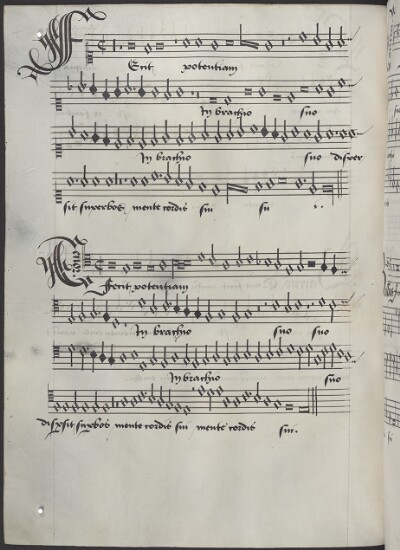 Fecit potentiam
In brachio suo
In brachio suo disper
sit superbos mente cordis sui sui
Fecit potentiam
In brachio suo suo
In brachio suo
dispersit superbos mente cordis sui mente cordis sui.